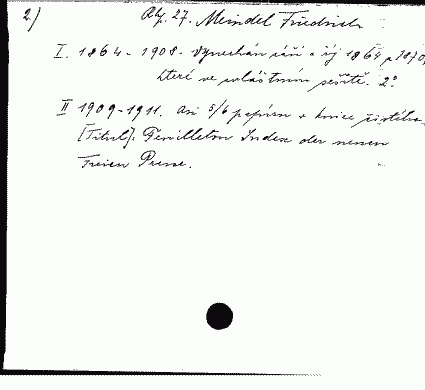 2) Alf. 27. Meindel Friedrich
I. 1864 - 1908. Vynechán září a říj 1864 a 1870,
které ve zvláštním sešitě. 2°
II 1909-1911. Asi 5/6 papíru v knize
[Titul]: Feuilleton Index der neuen
Freien Presse.